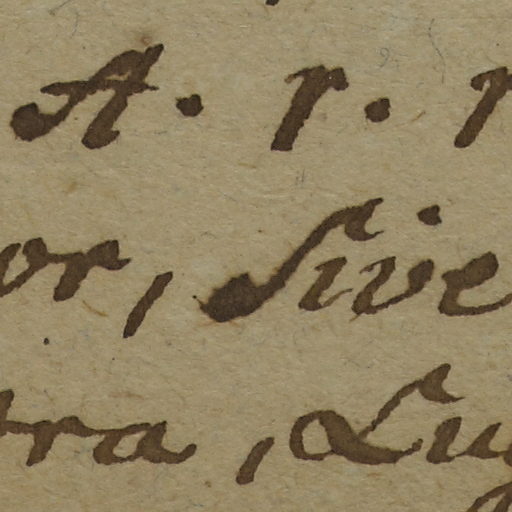 A. r. r
or, Sive
tra, Lug